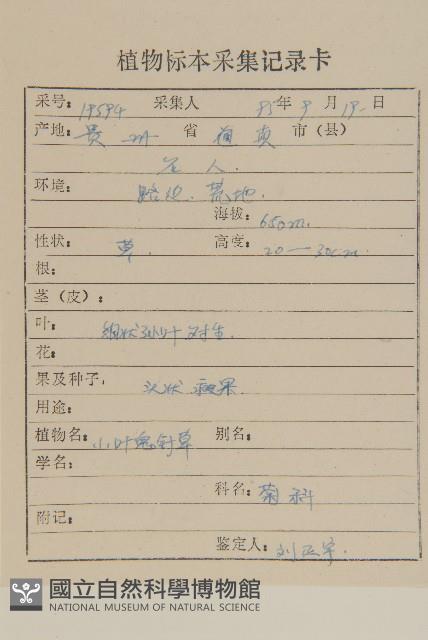 植物标本采集记录卡
采号: 19594 采集人 85年9月19日
产地: 贵州省道真市(县)
环境: 路边、荒地.
海拔: 650m.
性状: 草. 高度: 20—30cm.
根:
茎(皮):
叶: 叶对生.
花:
果及种子: 头状瘦果.
用途:
植物名: 小叶鬼针草 别名:
学名:
科名: 菊科
附记:
鉴定人: 刘正宇.
國立自然科學博物館
NATIONAL MUSEUM OF NATURAL SCIENCE